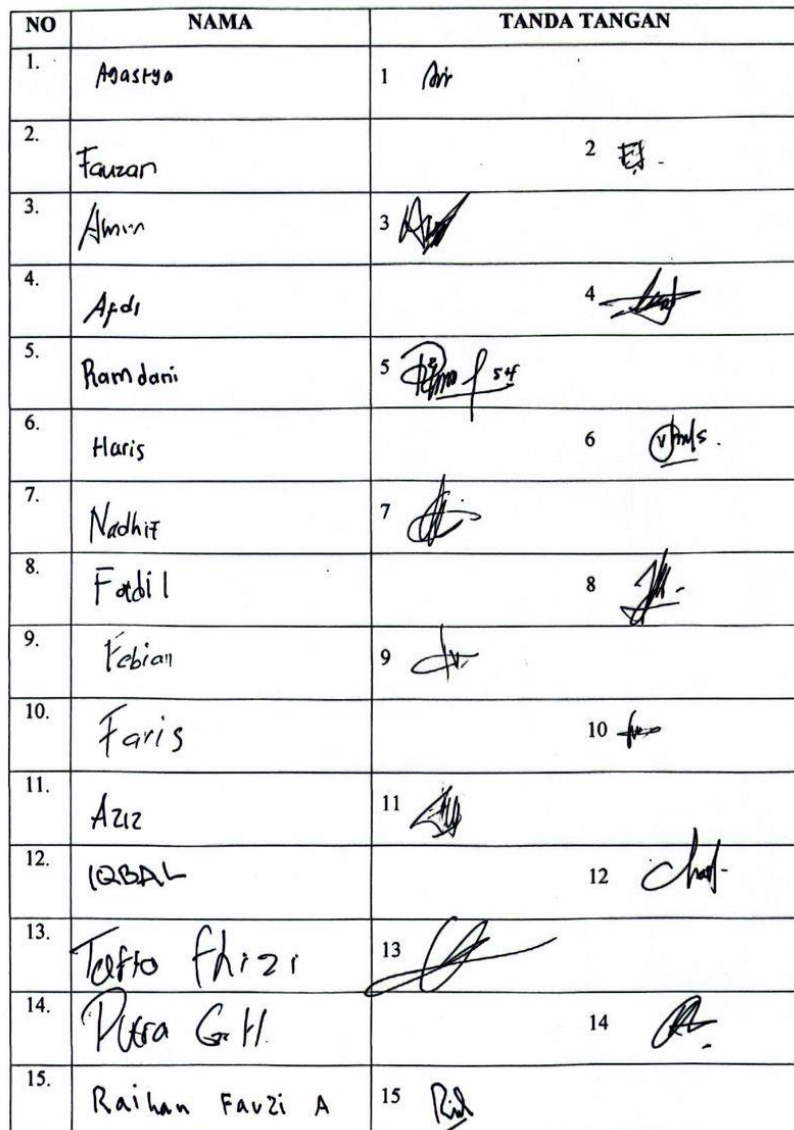 NO NAMA TANDA TANGAN
1. Agastya 1
2. Fauzan 2
3. Amin 3
4. Apdi 4
5. Ramdani 5
6. Haris 6
7. Nadhif 7
8. Fadil 8
9. Febian 9
10. Faris 10
11. Aziz 11
12. IQBAL 12
13. 13
14. Putra G.H. 14
15. Raihan Fauzi A 15